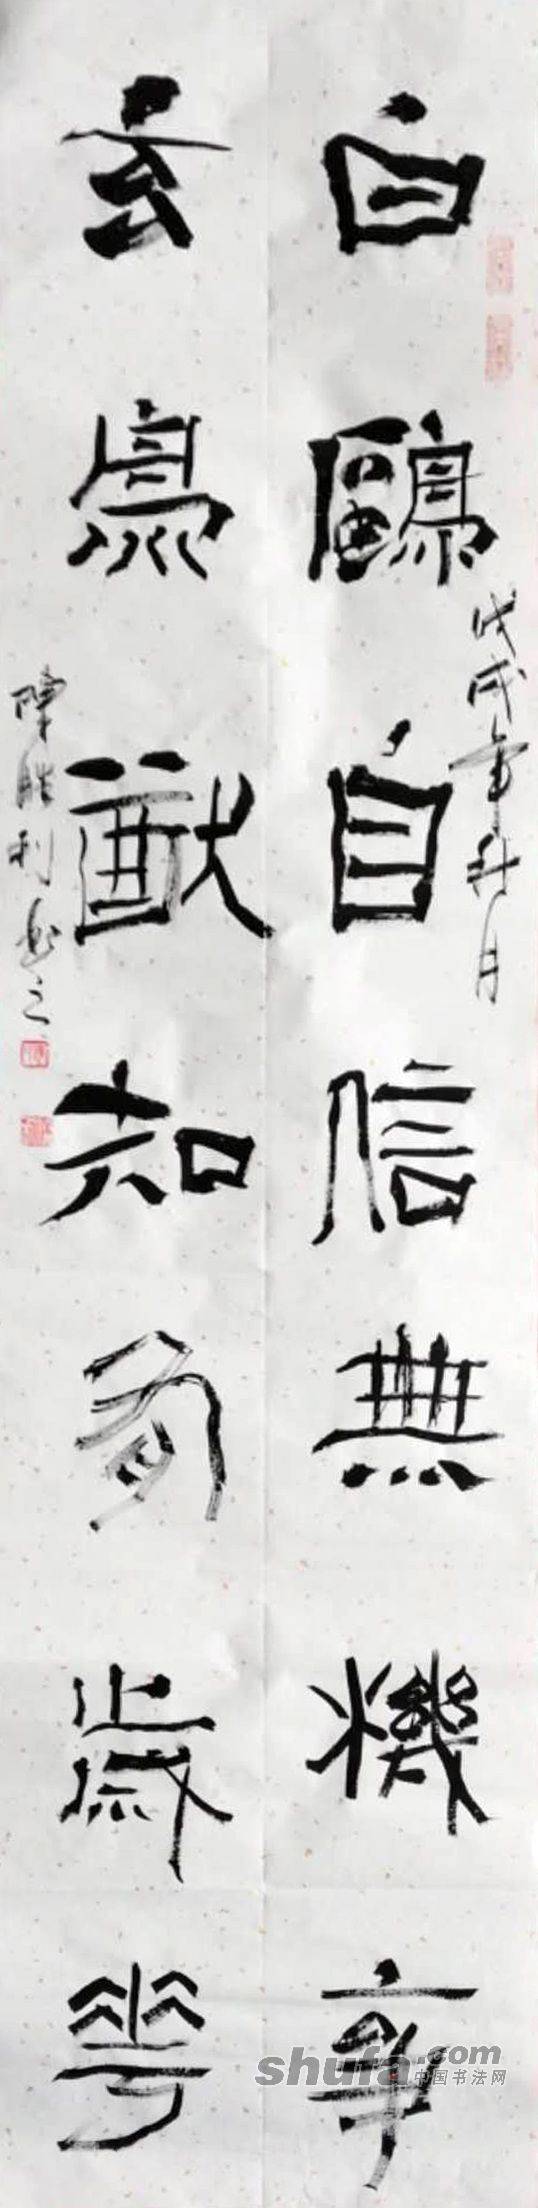 白鷗自信無機事
玄鳥猷知有歲華
戊戌年秋月
陳勝利書之
shufa.com
中国书法网